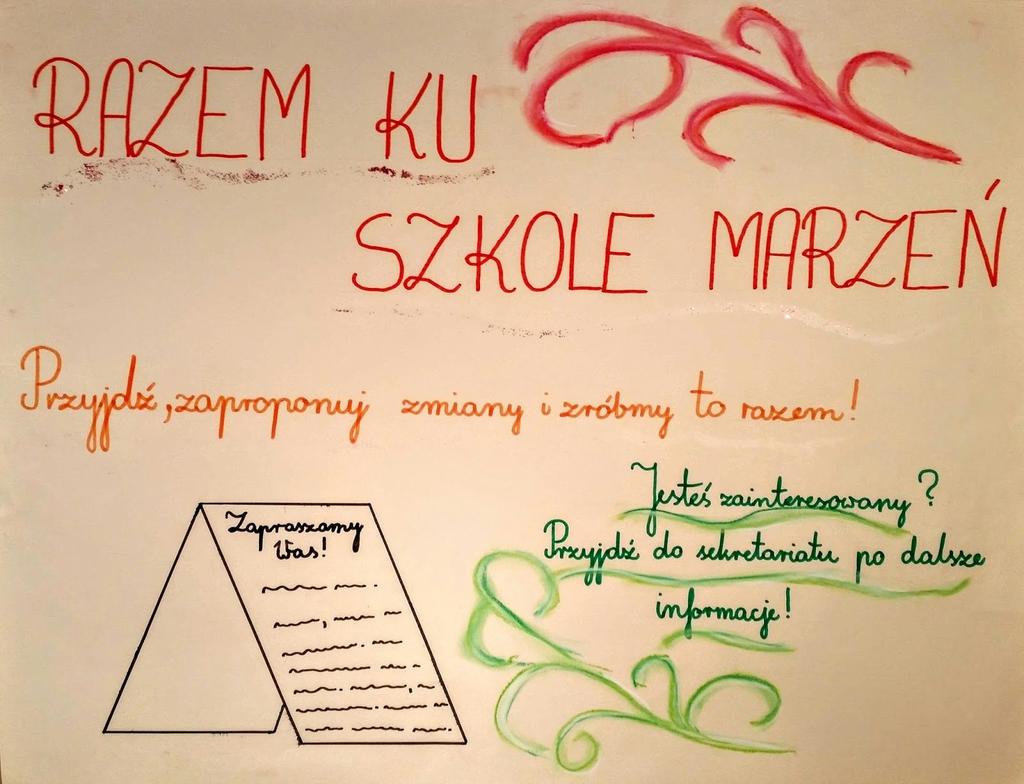 RAZEM KU
SZKOLE MARZEŃ
Przyjdź, zaproponuj zmiany i zróbmy to razem!
Zapraszamy
Was!
Jesteś zainteresowany?
Przyjdź do sekretariatu po dalsze
informacje!